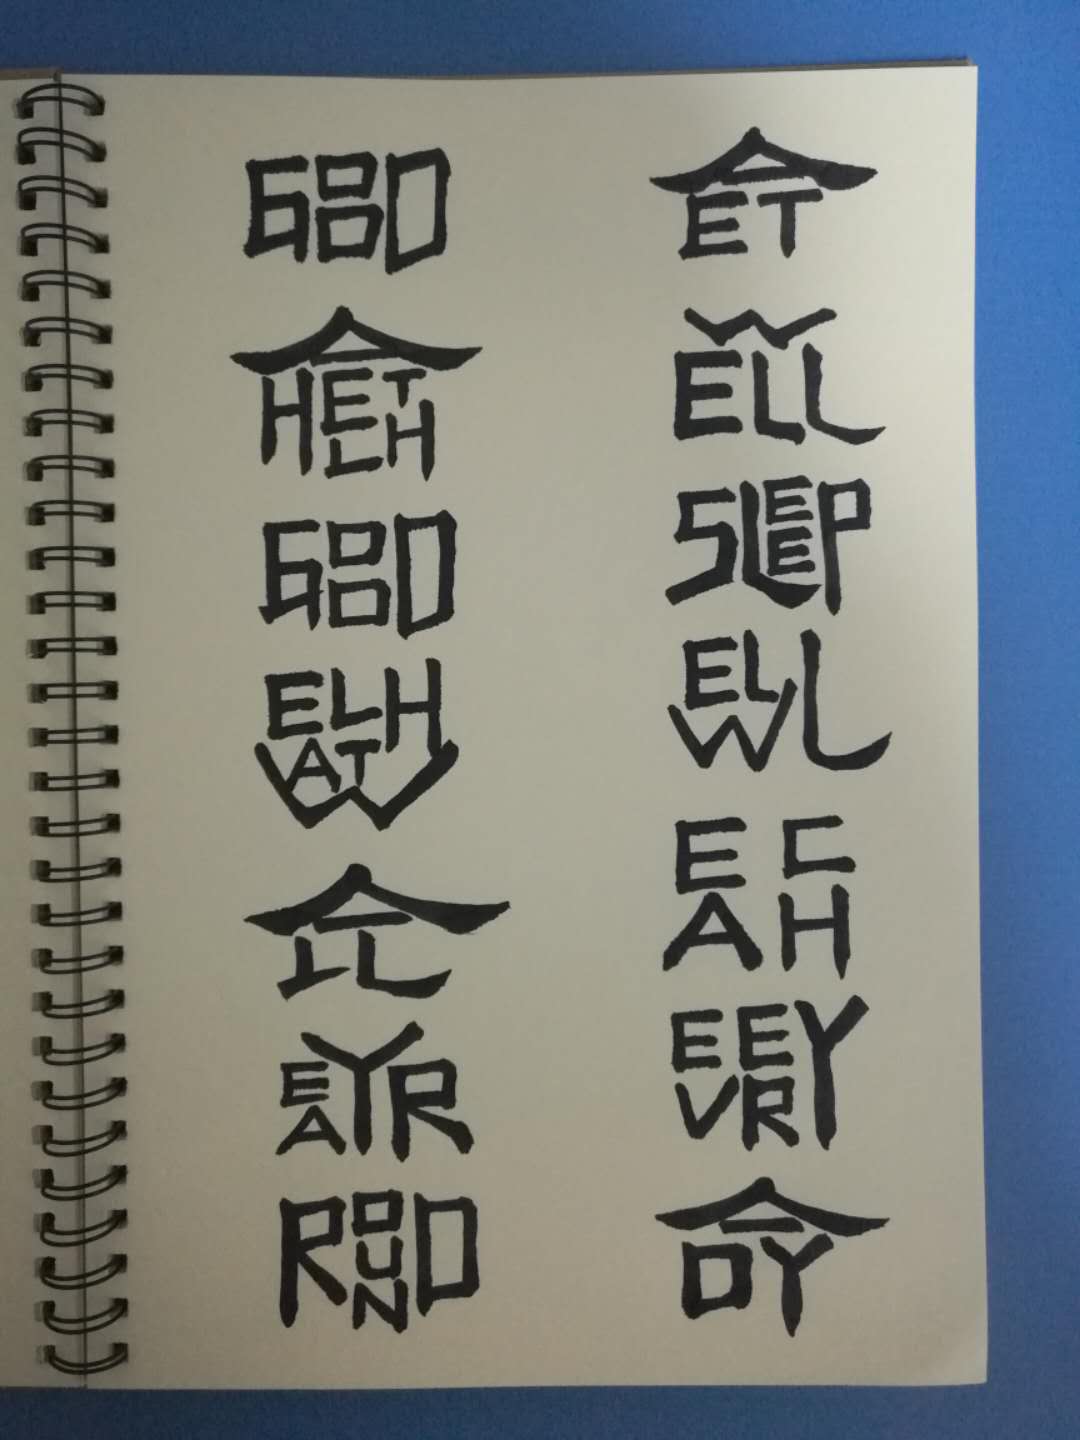 GOOD
HEALTH
GOOD
WEALTH
ALL
YEAR
ROUND
EAT
WELL
SLEEP
WELL
EACH
EVERY
DAY